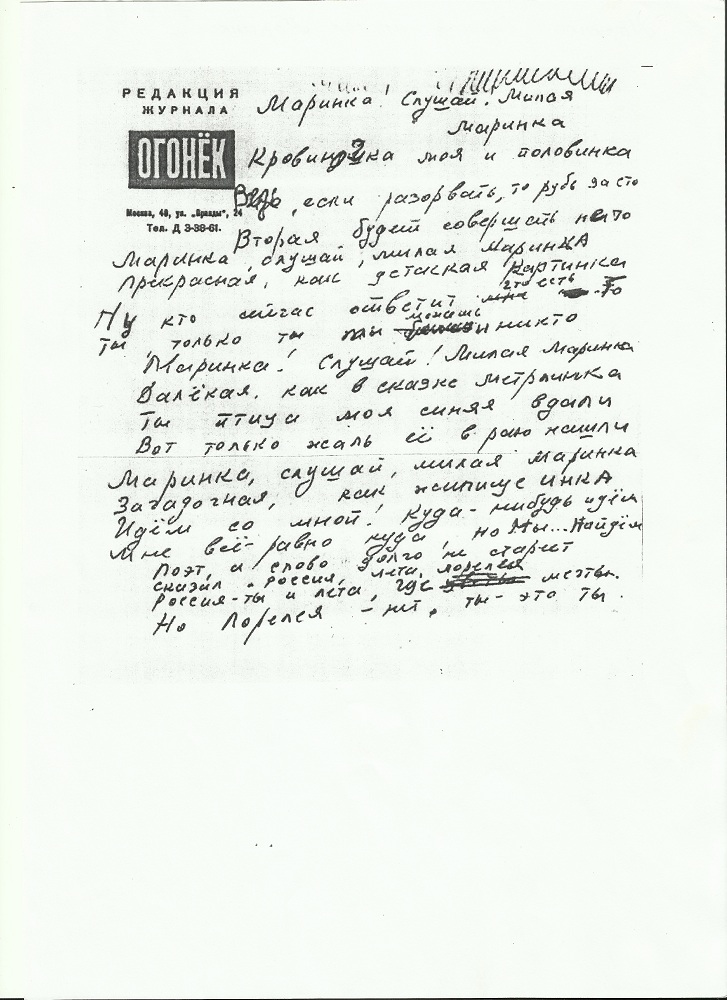 РЕДАКЦИЯ
ЖУРНАЛА
ОГОНЁК
Москва, 48, ул. „Правды“, 24
Тел. Д 3-38-61.
Маринка! Слушай. Милая
Маринка
Кровиночка моя и половинка
Ведь, если разорвать, то рубь за сто
Вторая будет совершать не то
Маринка, слушай, милая Маринка
Прекрасная, как детская картинка
Ну кто сейчас ответит что есть то
Ты, только ты ты можешь и никто
Маринка! Слушай! Милая Маринка
Далёкая, как в сказке Метрлинка
Ты птица моя синяя вдали
Вот только жаль её в раю нашли
Маринка, слушай, милая Маринка
Загадочная, как жилище инка
Идём со мной! Куда-нибудь идём
Мне всё-равно куда, но Мы... Найдём
Поэт, а слово долго не стареет
Сказал „Россия, Лета, лорелея
Россия-ты и лета, где мечты.
Но Лорелея - нет, ты- это ты.